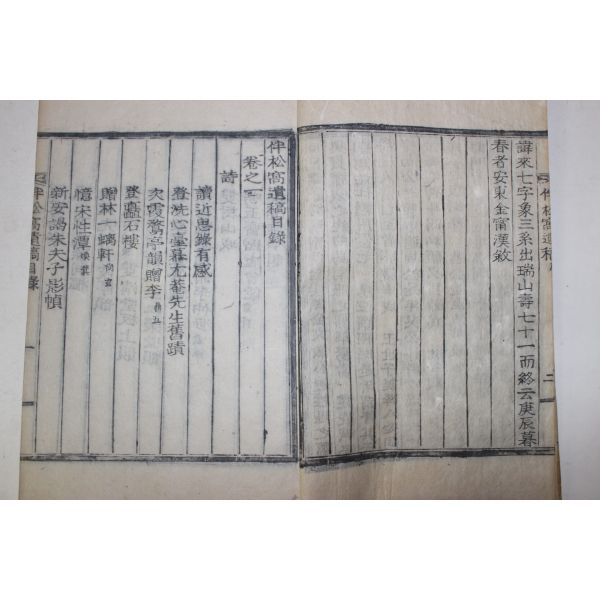 諱來七字象三系出瑞山壽七十一而終云庚辰暮
春者安東金甯漢敘
二
伴松窩遺稿目錄
卷之一
詩
讀近思錄有感
登洗心臺慕尤菴先生舊蹟
次霞鶩亭韻贈李
登矗石樓
贈林一螭軒
憶宋性潭
新安謁朱夫子影幀
伴松窩遺稿目錄
一